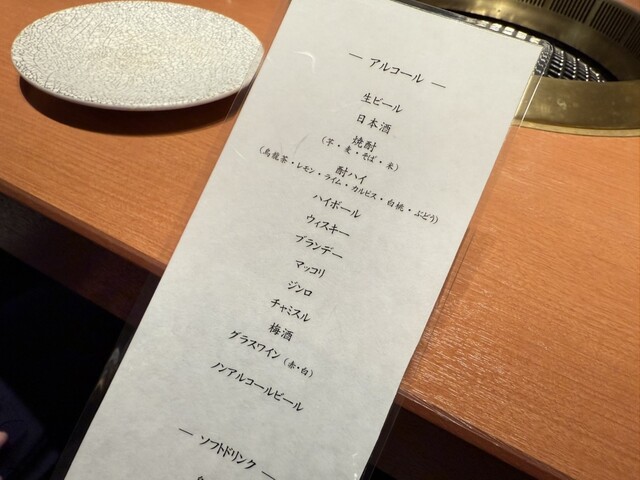 ― アルコール ―
生ビール
日本酒
焼酎
(芋・麦・そば・米)
酎ハイ
(烏龍茶・レモン・ライム・カルピス・白桃・ぶどう)
ハイボール
ウィスキー
ブランデー
マッコリ
ジンロ
チャミスル
梅酒
グラスワイン (赤・白)
ノンアルコールビール
― ソフトドリンク ―